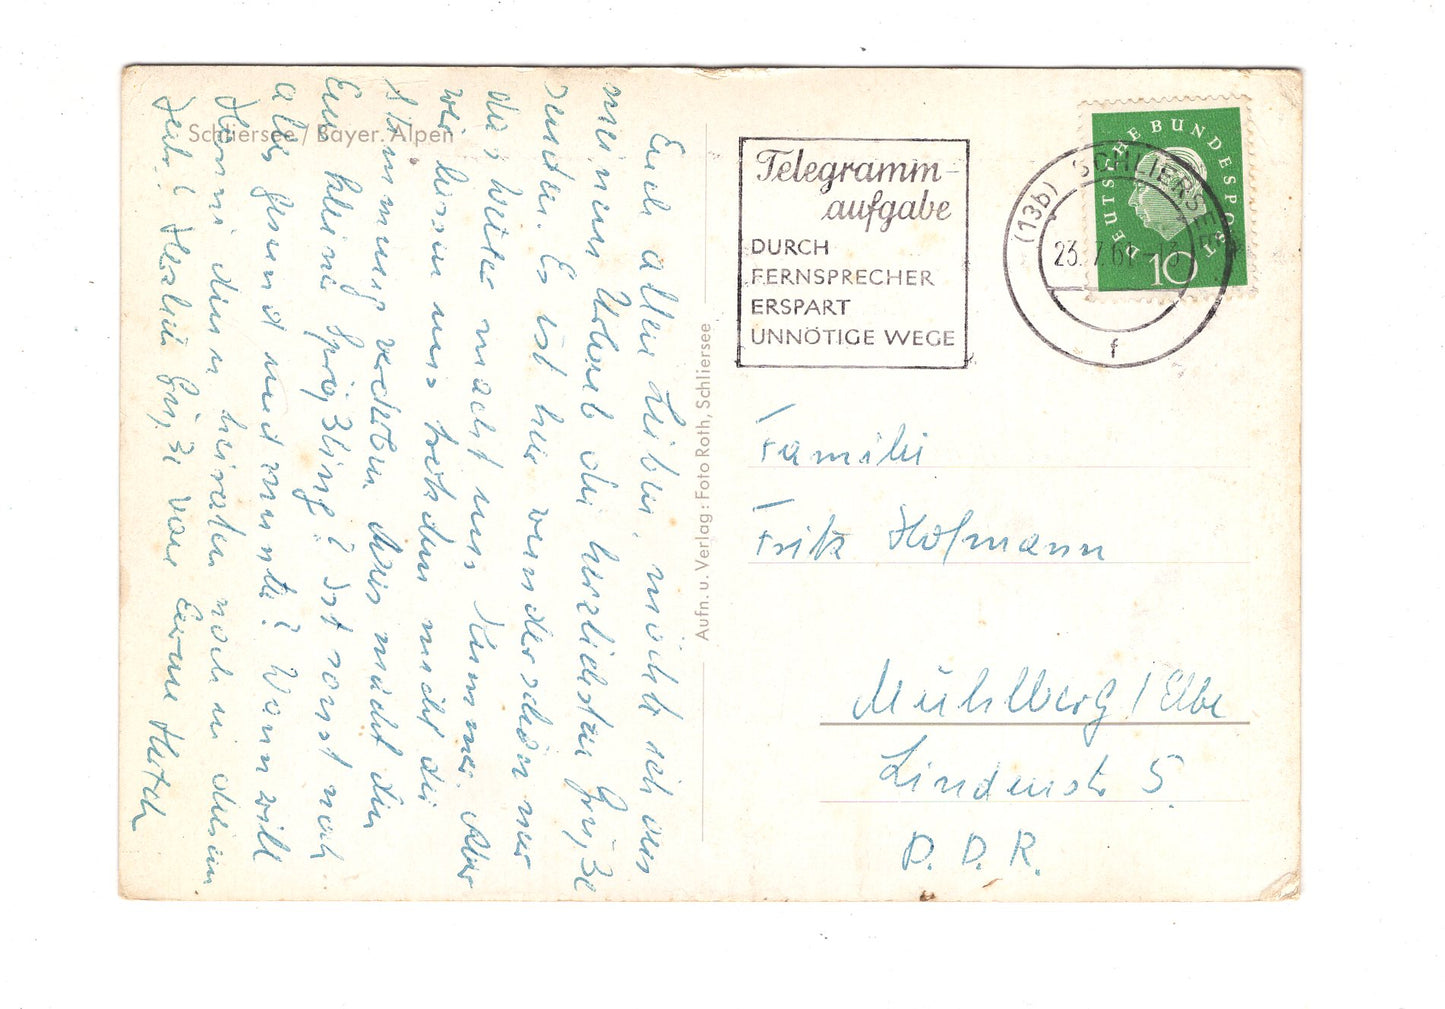 Schliersee / Bayer. Alpen
Euch allen Lieben, möcht ich aus
meinem Urlaub die herzlichsten Grüße
senden. Es ist hier wunderschön nur
das Wetter macht uns Kummer. Aber
wir lassen uns trotzdem nicht die
Stimmung verderben. Was macht den
Euer kleiner Sprößling? Ist sonst noch
alles gesund und munter? Wann will
Hanni denn heiraten noch in diesem
Jahr? Herzliche Grüße von Eurer
Aufn. u. Verlag: Foto Roth, Schliersee
Telegramm-
aufgabe
DURCH
FERNSPRECHER
ERSPART
UNNÖTIGE WEGE
(13b) SCHLIERSEE
23. 7. 61
f
DEUTSCHE BUNDESPOST
10
Familie
Fritz Hofmann
Mühlberg / Elbe
Lindenstr 5.
D. D. R.